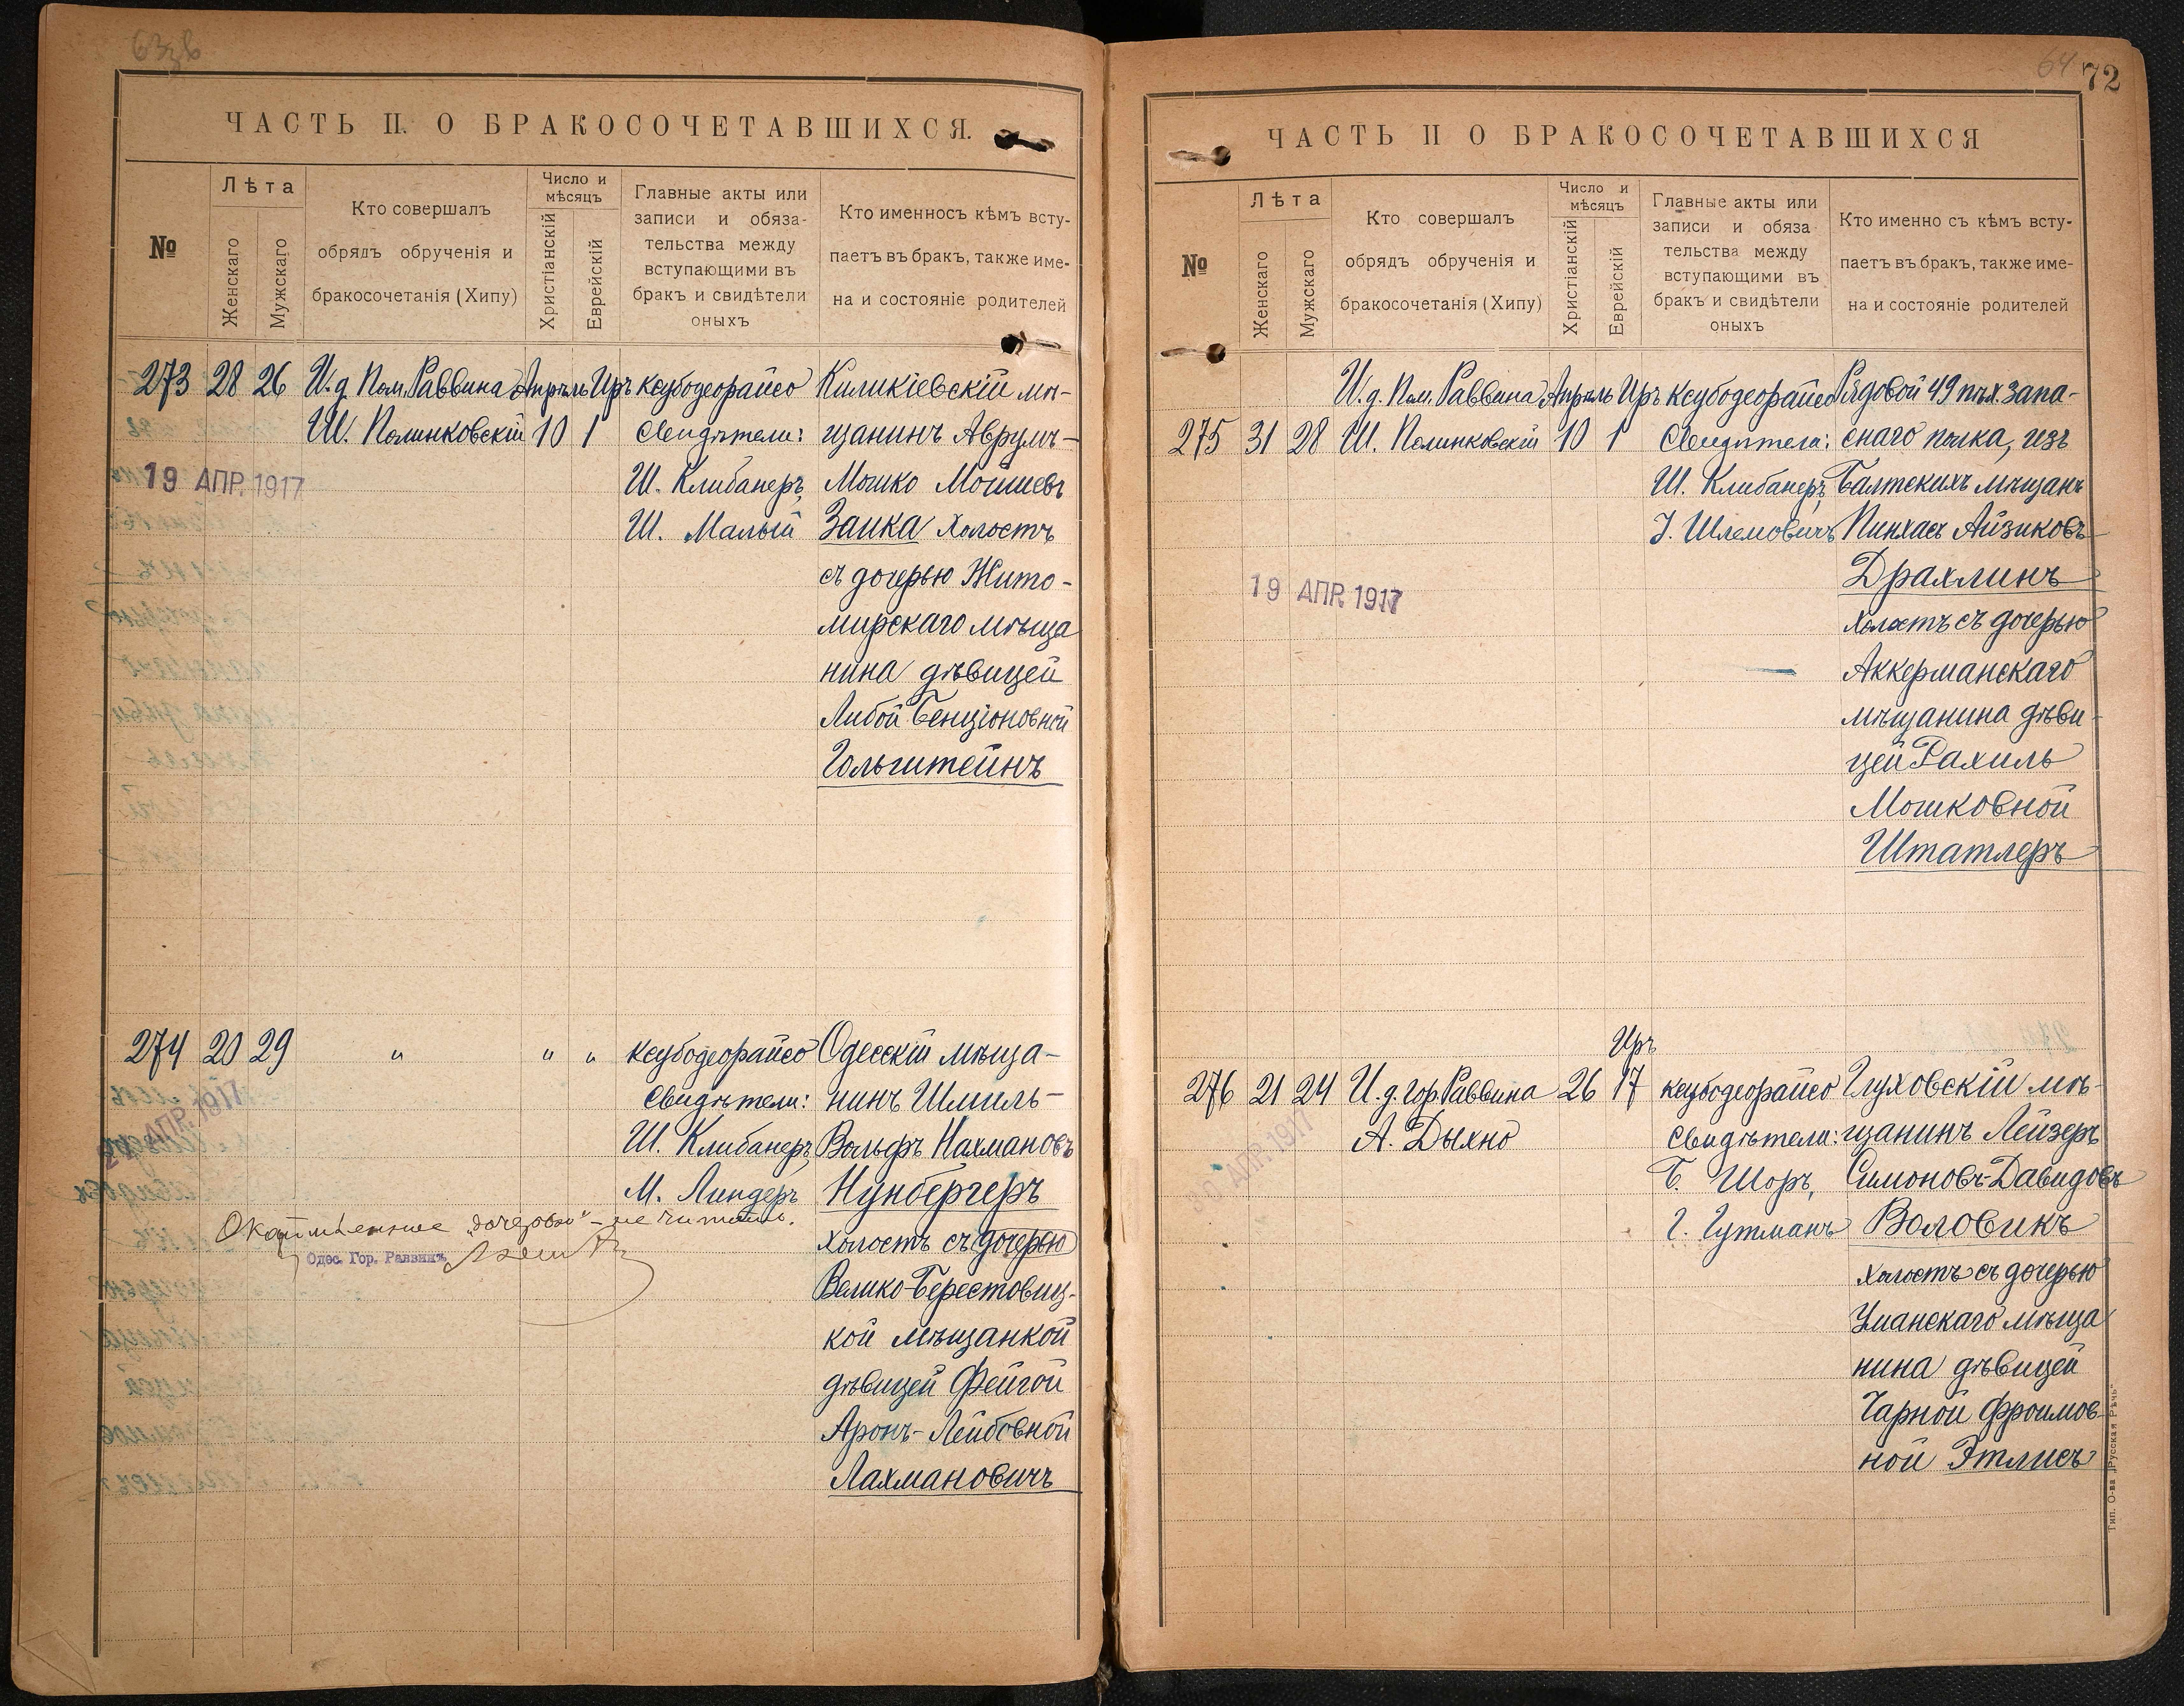 63зв
ЧАСТЬ II. О БРАКОСОЧЕТАВШИХСЯ.
№
Лѣта
Женскаго
Мужскаго
Кто совершалъ
обрядъ обрученія и
бракосочетанія (Хипу)
Число и
мѣсяцъ
Христіанскій
Еврейскій
Главные акты или
записи и обяза-
тельства между
вступающими въ
бракъ и свидѣтели
оныхъ
Кто именносъ кѣмъ всту-
паетъ въ бракъ, также име-
на и состояніе родителей
273 28 26 И.д. Пом. Раввина Апрѣль Иръ ксубодеорайсо Киликіевскій мѣ-
Ш. Полинковскій 10 1 Свидѣтели: щанинъ Аврумъ-
19 АПР. 1917 Ш. Клибанеръ, Мошко Мошиевъ
Ш. Малый Заика холостъ
съ дочерью Жито-
мирскаго мѣща
нина дѣвицей
Либой Бенціоновной
Гольштейнъ
274 20 29 " " " ксубодеорайсо Одесскій мѣща-
Свидѣтели: нинъ Шмиль-
АПР. 1917 Ш. Клибанеръ, Вольфъ Нахмановъ
М. Линдеръ Нунбергеръ
„дочерью" - не читать.
Одес. Гор. Раввинъ
холостъ съ дочерью
Велико-Берестовиц-
кой мѣщанкой
дѣвицей Фейгой
Аронъ-Лейбовной
Лахмановичъ
64 72
ЧАСТЬ II О БРАКОСОЧЕТАВШИХСЯ
№
Лѣта
Женскаго
Мужскаго
Кто совершалъ
обрядъ обрученія и
бракосочетанія (Хипу)
Число и
мѣсяцъ
Христіанскій
Еврейскій
Главные акты или
записи и обяза
тельства между
вступающими въ
бракъ и свидѣтели
оныхъ
Кто именно съ кѣмъ всту-
паетъ въ бракъ, также име-
на и состояніе родителей
И.д. Пом. Раввина Апрѣль Иръ ксубодеорайсо Рядовой 49 пѣх. запа-
275 31 28 Ш. Полинковскій 10 1 Свидѣтели: снаго полка, изъ
Ш. Клибанеръ, Балтскихъ мѣщанъ
І. Шлемовичъ Пинхасъ Айзиковъ
19 АПР. 1917 Драхлинъ
холостъ съ дочерью
Аккерманскаго
мѣщанина дѣви-
цей Рахиль
Мошковной
Штатлеръ
Иръ
276 21 24 И.д. гор. Раввина 26 17 ксубодеорайсо Глуховскій мѣ-
АПР. 1917 А. Дыхно Свидѣтели: щанинъ Лейзеръ
Б. Шоръ, Симоновъ-Давидовъ
Г. Гутманъ Воловикъ
холостъ съ дочерью
Уманскаго мѣща
нина дѣвицей
Чарной Фроимов-
ной Этлисъ
Тип. О-ва „Русская Рѣчь"